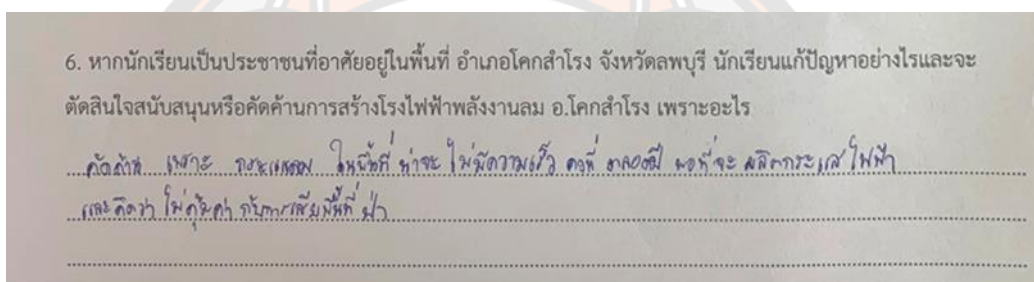 6. หากนักเรียนเป็นประชาชนที่อาศัยอยู่ในพื้นที่ อำเภอโคกสำโรง จังหวัดลพบุรี นักเรียนแก้ปัญหาอย่างไรและจะ
ตัดสินใจสนับสนุนหรือคัดค้านการสร้างโรงไฟฟ้าพลังงานลม อ.โคกสำโรง เพราะอะไร
คัดค้าน เพราะ กระแสลม ในพื้นที่ น่าจะ ไม่มีความเร็ว คงที่ ตลอดปี พอที่จะ ผลิตกระแส ไฟฟ้า
และคิดว่า ไม่คุ้มค่า กับการเสียพื้นที่ ป่า